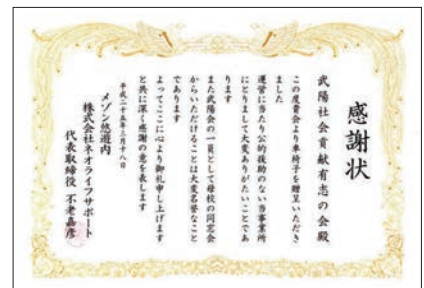 感謝状
武陽社会貢献有志の会殿
この度貴会より車椅子を贈呈いただき
ました
運営に当たり公的援助のない当事業所
にとりまして大変ありがたいことであ
ります
また武陽会の一員として母校の同窓会
からいただけることは大変名誉なこと
であります
よってここに心より御礼申し上げます
と共に深く感謝の意を表します
平成二十五年三月十八日
メゾン悠遊内
株式会社ネオライフサポート
代表取締役 不老嘉彦